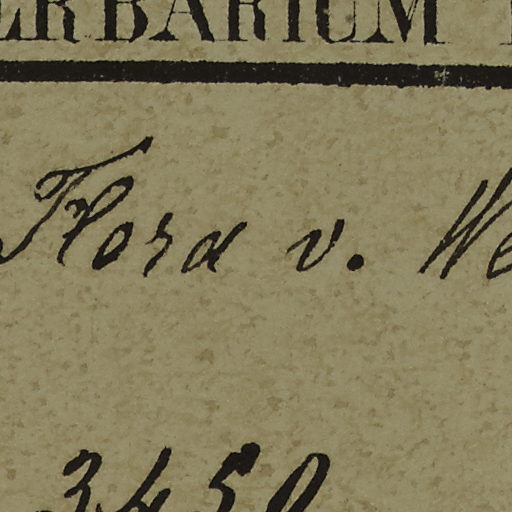 HERBARIUM
Flora v. We
3450